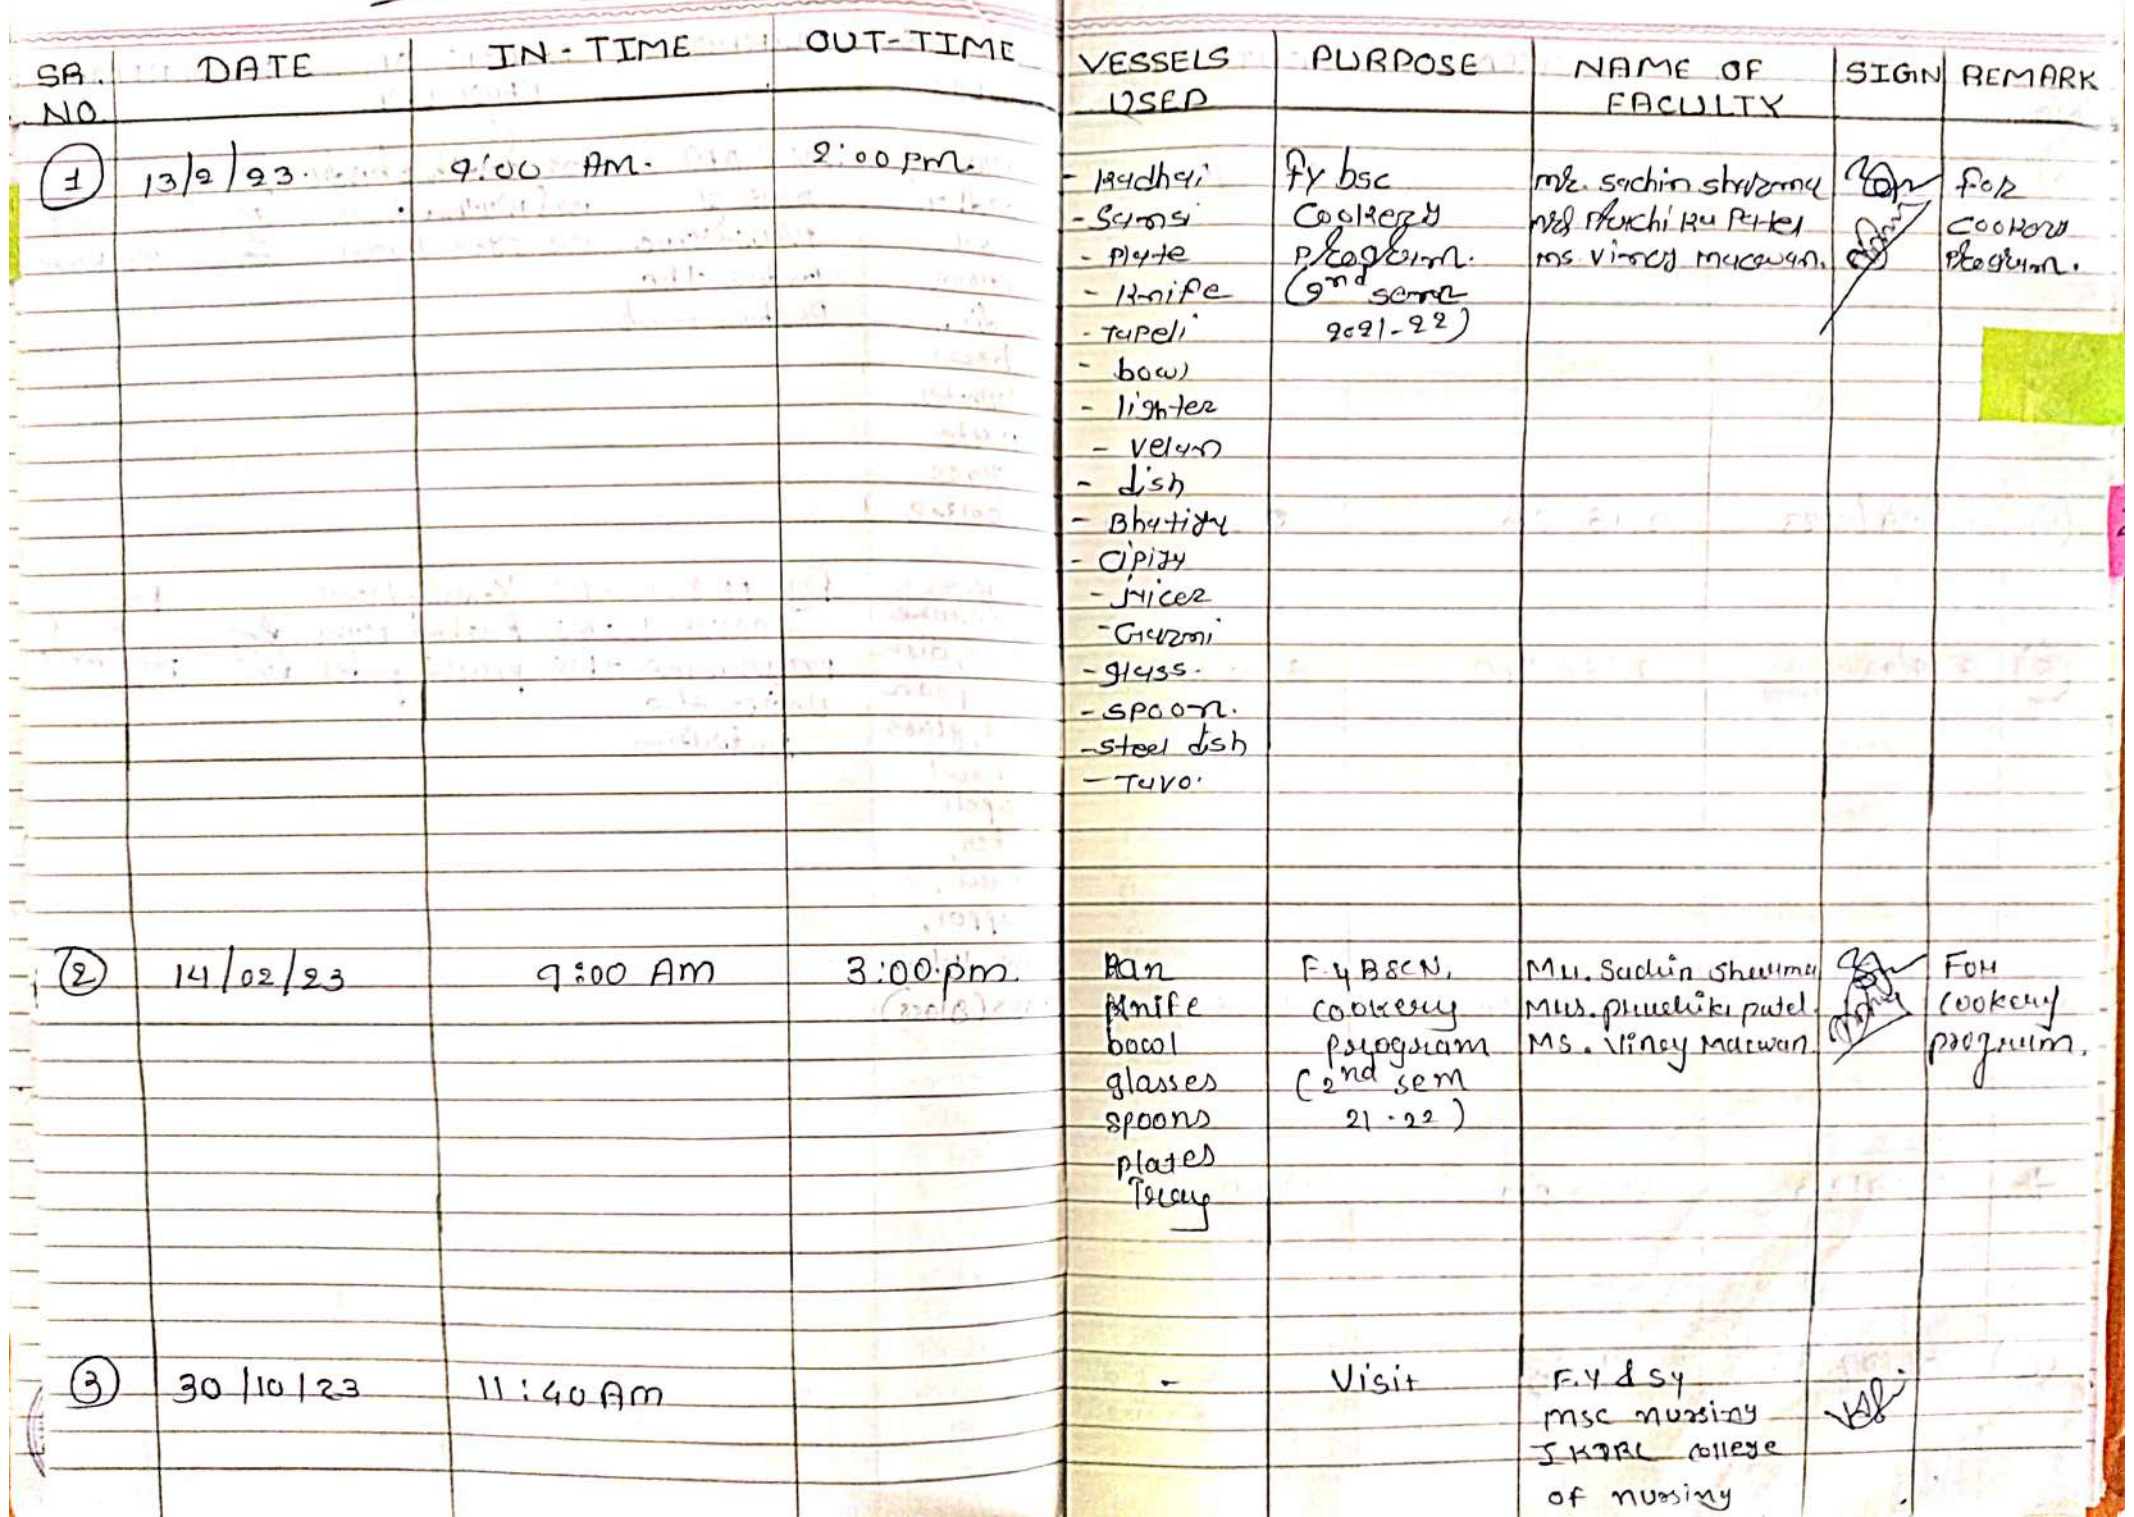 SR. NO
DATE
IN-TIME
OUT-TIME
VESSELS USED
PURPOSE
NAME OF FACULTY
SIGN
REMARK
1
13/2/23.
9:00 AM.
2:00 pm.
- Kadhai
- Sansi
- Plate
- Knife
- Tapeli
- bowl
- lighter
- velan
- dish
- Bhatiya
- juicer
- Garni
- glass.
- spoon.
- steel dish
- Tavo.
fy bsc
Cookery
program.
(2nd sem
2021-22)
mr. sachin sharma
ms vincy macwan.
for
cookery
program.
2
14/02/23
9:00 AM
3:00 pm.
Pan
Knife
bowl
glasses
spoons
plates
Tray
F.y BSCN,
cookery
program
(2nd sem
21-22)
Mr. Sachin Sharma
Mrs. pruchika patel
Ms. Vincy Macwan
For
cookery
program.
3
30/10/23
11:40 AM
-
Visit
F.Y & SY
msc nursing
college
of nursing